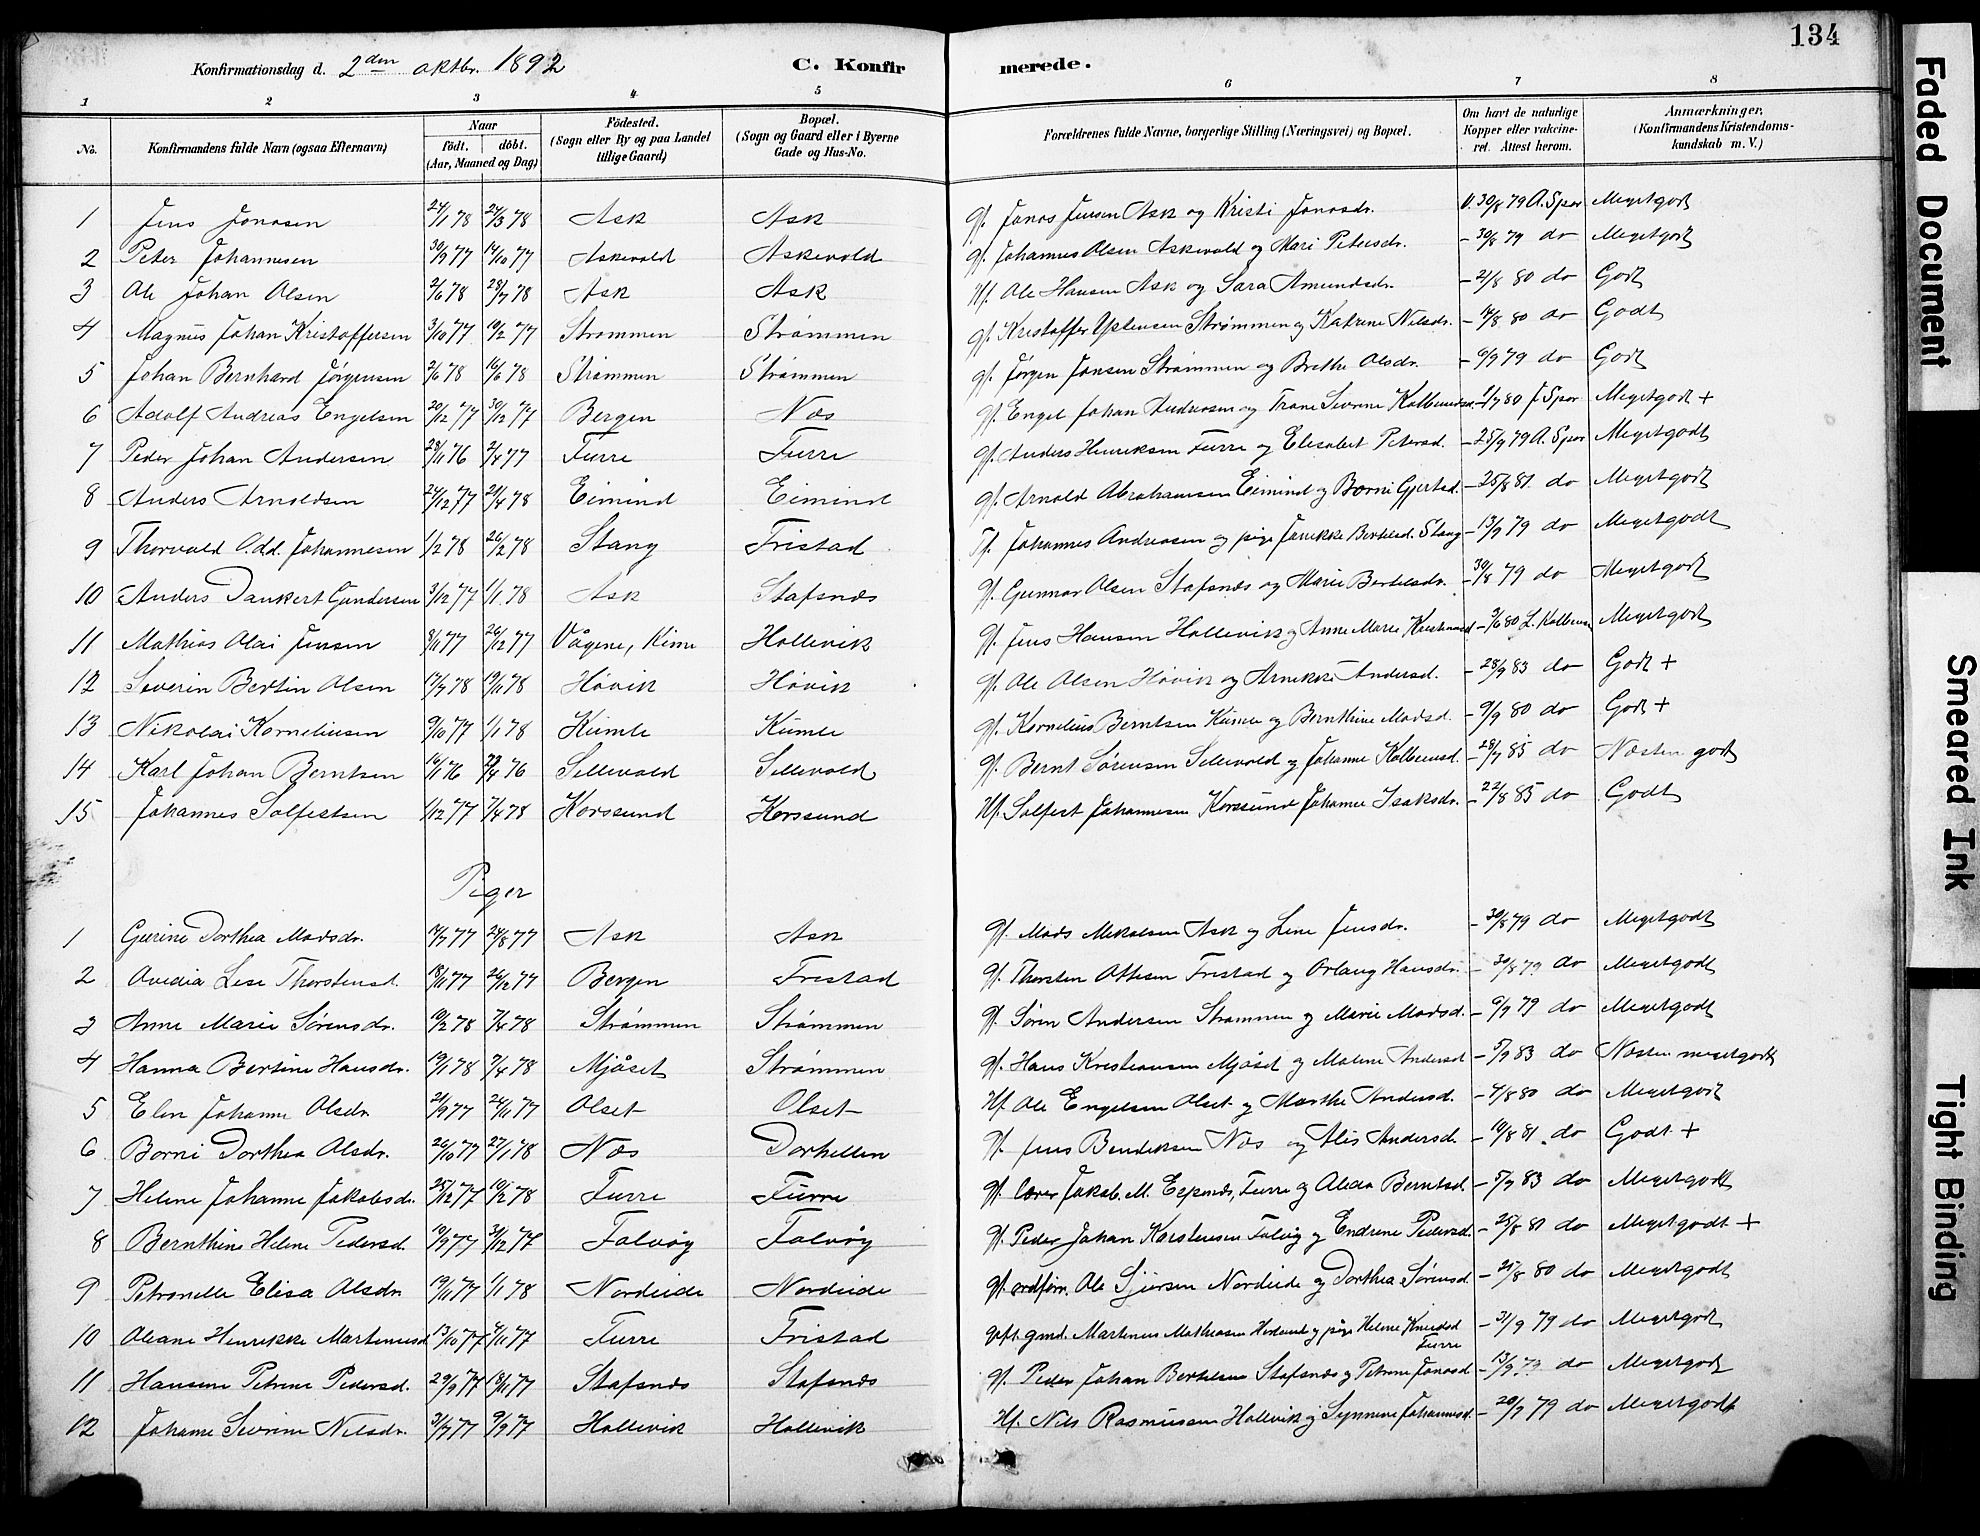 134
Konfirmationsdag d. 2den oktbr. 1892 C. Konfirmerede.
1 2 3 4 5 6 7 8
No. Konfirmandens fulde Navn (ogsaa Efternavn) Naar födt. döbt. (Aar, Maaned og Dag) Födested. (Sogn eller By og paa Landet tillige Gaard) Bopæl. (Sogn og Gaard eller i Byerne Gade og Hus-No. Forældrenes fulde Navne, borgerlige Stilling (Næringsvei) og Bopæl. Om havt de naturlige Kopper eller vakcineret. Attest herom. Anmærkninger. (Konfirmandens Kristendomskundskab m. V.)
1 Jens Jonasen 24/1 78 24/3 78 Ask Ask Gf. Jonas Jensen Ask og Kristi Jonasdr. V. 30/8 79 A. Spor Megetgodt
2 Peter Johannesen 30/9 77 14/10 77 Askevold Askevold Gf. Johannes Olsen Askevold og Mari Petersdr. - 30/8 79 do Megetgodt
3 Ole Johan Olsen 2/6 78 28/7 78 Ask Ask Hf. Ole Hansen Ask og Sara Amundsdr. - 21/8 80 do Godt
4 Magnus Johan Kristoffersen 3/10 77 19/2 77 Strømmen Strømmen Gf. Kristoffer Strømmen og Katrine Nilsdr. - 14/8 80 do Godt
5 Johan Bernhard Jørgensen 2/6 78 16/6 78 Strømmen Strømmen Gf. Jørgen Jonsen Strømmen og Brethe Olsdr. - 6/9 79 do Godt
6 Adolf Andreas Engelsen 20/12 77 30/12 77 Bergen Næs Gf. Engel Johan Andreasen og Trane Severine 80 J Spor Megetgodt +
7 Peder Johan Andersen 28/11 76 2/4 77 Furre Furre Gf. Anders Henriksen Furre og Elisabet Petersd. - 25/9 79 A. Spor Megetgodt
8 Anders Arnoldsen 24/12 77 21/4 78 Eimind Eimind Gf. Arnold Abrahamsen Eimind og Borni Gjertsd. - 25/8 81 do Megetgodt
9 Thorvald Odd. Johannesen 1/2 78 26/2 78 Stang Fristad Tf. Johannes Andreasen og pige Janikke Bertelsd. Stang - 13/9 79 do Megetgodt
10 Anders Dankert Gundersen 3/12 77 1/1 78 Ask Stafsnæs Gf. Gunnar Olsen Stafsnæs og Marie Bertelsdr. - 30/8 79 do Megetgodt
11 Mathias Olai Jensen 8/11 77 26/12 77 Vågene, Kinn Hollevik Gf. Jens Hansen Hollevik og Anne Marie - 3/6 80 L. Megetgodt
12 Severin Bertin Olsen 17/7 78 19/11 78 Høvik Høvik Gf. Ole Olsen Høvik og Arnikke Andersd. - 28/9 83 do Godt +
13 Nikolai Korneliusen 9/10 77 1/1 78 Kumle Kumle Gf. Kornelius Berntsen Kumle og Bernthine Madsd. - 9/9 80 do Godt +
14 Karl Johan Berntsen 16/1 76 23/4 76 Sellevold Sellevold Gf. Bernt Sørensen Sellevold og Johanne Kolbeinsd. - 28/7 85 do Næsten godt
15 Johannes Solfestsen 1/12 77 7/4 78 Korssund Korssund Hf. Solfest Johannesen Korssund Johanne Isaksdr. - 22/8 85 do Godt
Piger
1 Gurine Dorthea Madsdr. 14/7 77 24/8 77 Ask Ask Gf. Mads Mikalsen Ask og Line Jensdr. - 30/8 79 do Megetgodt
2 Ovedia Lese Thorstensd. 18/11 77 26/12 77 Bergen Fristad Gf. Thorsten Ottesen Fristad og Orlaug Hansdr. - 30/8 79 do Megetgodt
3 Anne Marie Sørensdr. 19/2 78 7/4 78 Strømmen Strømmen Gf. Søren Andersen Strømmen og Marie Madsd. - 6/9 79 do Megetgodt
4 Hanna Bertine Hansdr. 19/1 78 7/4 78 Mjåset Strømmen Gf. Hans Kristiansen Mjåset og Malene Andersd - 5/9 83 do Næsten megetgodt
5 Elen Johanne Olsdr 21/9 77 24/11 77 Olset Olset Hf. Ole Engelsen Olset og Marthe Andersd. - 7/8 80 do Megetgodt
6 Borni Dorthea Olsdr. 26/10 77 27/1 78 Næs Dorhellen Gf. Jens Bendiksen Næs og Alis Andersd. - 14/8 81. do Godt +
7 Helene Johanne Jakobsdr. 25/12 77 10/2 78 Furre Furre Gf. lærer Jakob. M. Espenæs, Furre og Alida Berntsd. - 5/9 83 do Megetgodt
8 Bernthine Helene Pedersd. 19/9 77 31/12 77 Folvøg Folvøg Gf. Peder Johan Karstensen Folvøg og Endrine Pedersd. - 25/8 81 do Megetgodt +
9 Petronelle Elisa Olsdr 19/11 77 1/1 78 Nordeide Nordeide Gf. ordfør. Ole Sjursen Nordeide og Dorthea Sørensd. - 21/8 80 do Megetgodt
10 Oleane Henrikke Martinusd 13/10 77 4/11 77 Furre Fristad gmd. Martinus Mathiasen og pige Helene Knudsd Furre - 31/9 79 do Megetgodt
11 Hansine Petrine Pedersd. 29/9 77 18/11 77 Stafsnæs Stafsnæs Gf. Peder Johan Bertelsen Stafsnæs og Petrine Jonasd - 13/9 79 do Megetgodt
12 Johanne Severine Nilsdr. 31/7 77 9/9 77 Hollevik Hollevik Hf. Nils Rasmussen Hollevik og Synneve Johannesd. - 20/9 79 do Megetgodt
Faded Document
Smeared Ink
Tight Binding